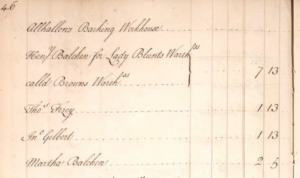 46
Allhallows Barking Workhouse
Henry Balchen for Lady Blunts Wareh.ses
calld Browns Wareh.ses 7 13
Tho.s 1 13
Jn.o Gilbert 1 13
Martha Balchen 2 5